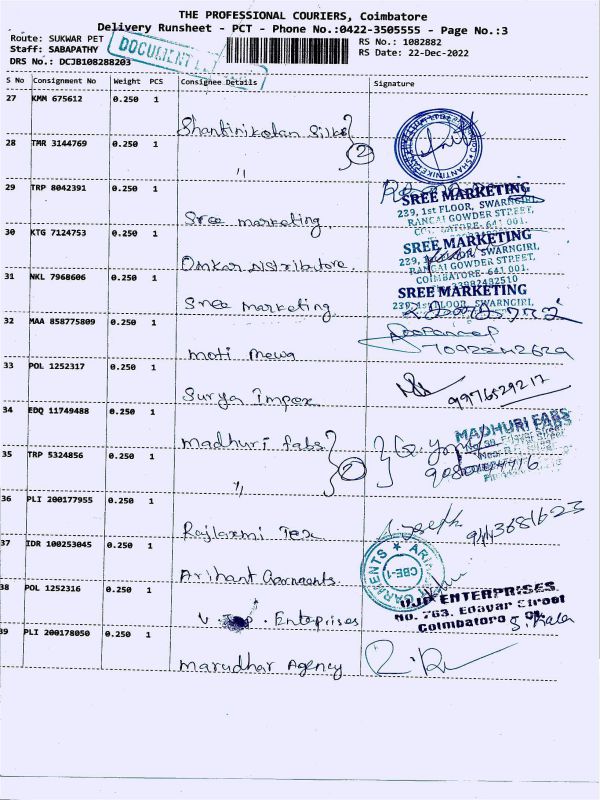 THE PROFESSIONAL COURIERS, Coimbatore
Delivery Runsheet - PCT - Phone No.:0422-3505555 - Page No.:3
Route: SUKWAR PET
Staff: SABAPATHY
DRS No.: DCJB108288203
DOCUMENT
RS No.: 1082882
RS Date: 22-Dec-2022
S No Consignment No Weight PCS Consignee Details Signature
27 KMM 675612 0.250 1
Shantiniketan Silks
28 TMR 3144769 0.250 1
2
"
29 TRP 8042391 0.250 1
SREE MARKETING
239, 1st FLOOR, SWARNGIRI,
RANGAI GOWDER STREET,
COIMBATORE-641 001.
Sree marketing
30 KTG 7124753 0.250 1
SREE MARKETING
239, 1st FLOOR, SWARNGIRI,
RANGAI GOWDER STREET,
COIMBATORE-641 001.
Omkar Distributors.
31 NKL 7968606 0.250 1
SREE MARKETING
239, 1st FLOOR, SWARNGIRI,
Sree marketing
32 MAA 858775809 0.250 1
Moti mewa
33 POL 1252317 0.250 1
Surya Impex
9976529217
34 EDQ 11749488 0.250 1
MADHURI FABS
Madhuri fabs
35 TRP 5324856 0.250 1
2
"
36 PLI 200177955 0.250 1
Rajlaxmi Tex
Joseph
37 IDR 100253045 0.250 1
GARMENTS
CBE-1
Arihant Garments.
38 POL 1252316 0.250 1
ENTERPRISES
No. 763, Edayar Street
Coimbatore
V Enteprises
39 PLI 200178050 0.250 1
Marudhar Agency